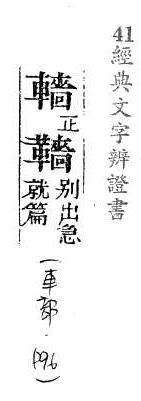 41經典文字辨證書
轖正
別出急就篇
(車部 196)